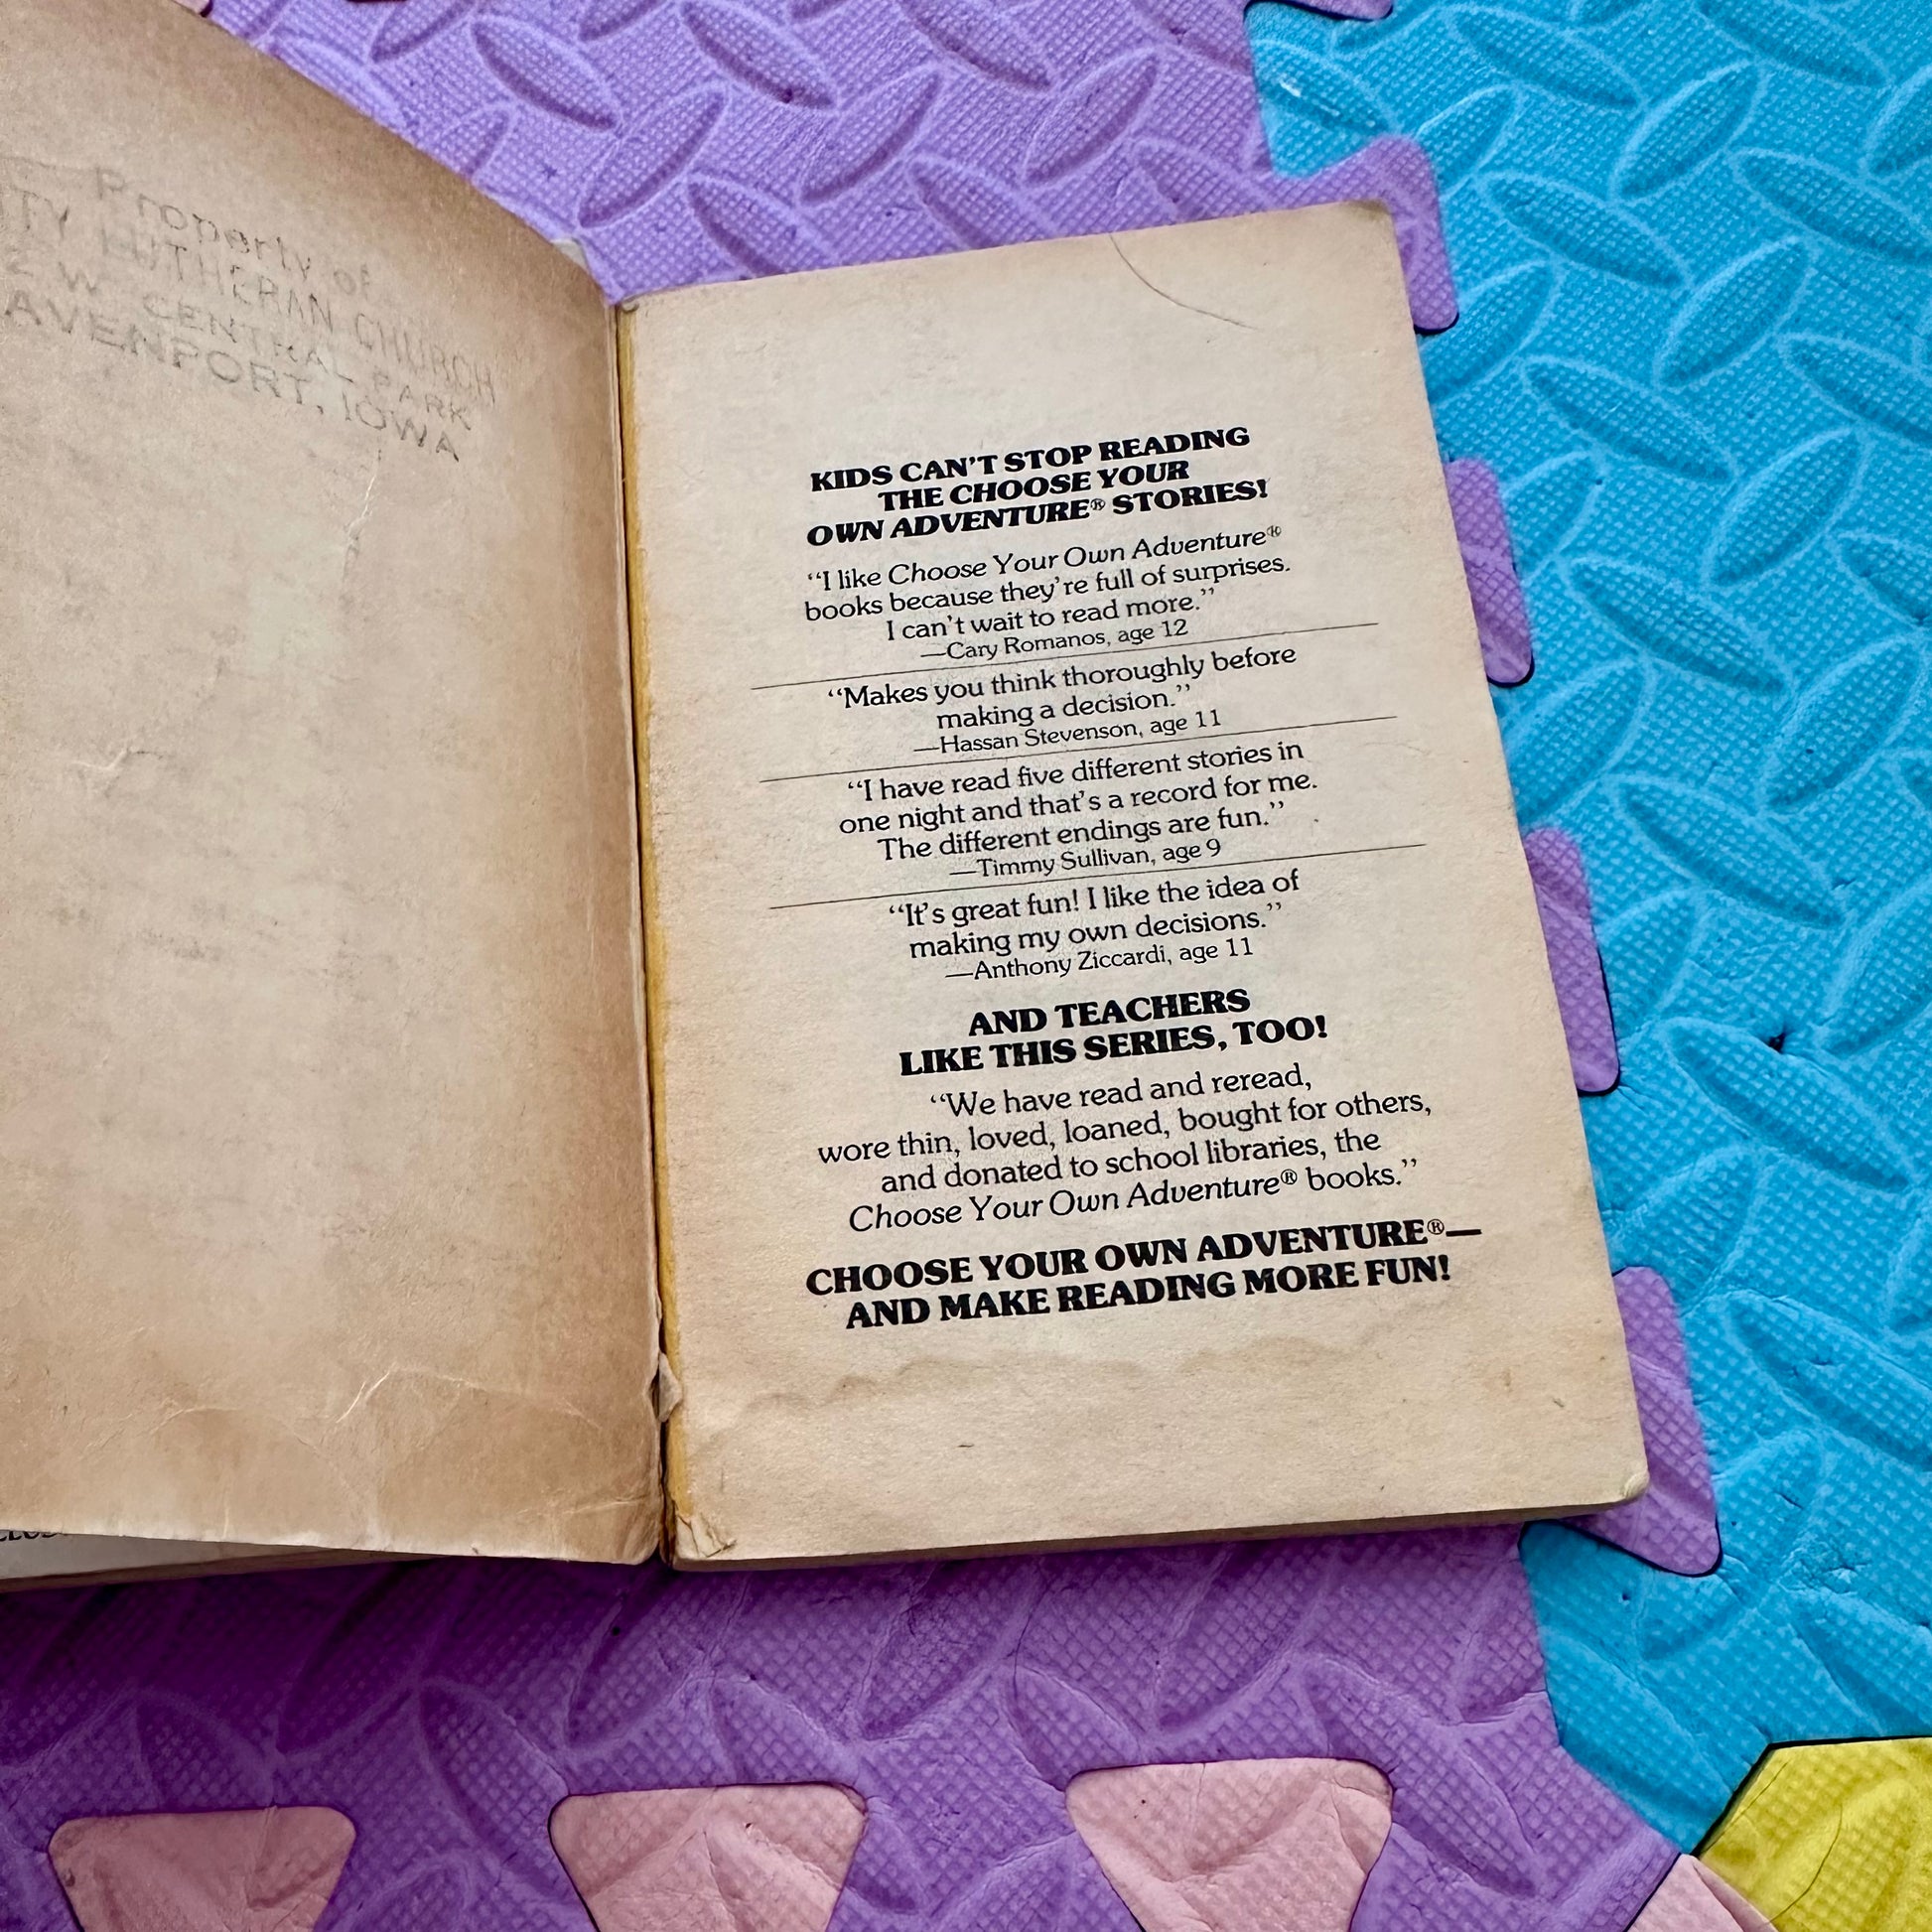 Property of
LUTHERAN CHURCH
W. CENTRAL PARK
AVENPORT, IOWA
KIDS CAN'T STOP READING
THE CHOOSE YOUR
OWN ADVENTURE® STORIES!
“I like Choose Your Own Adventure®
books because they're full of surprises.
I can't wait to read more.”
—Cary Romanos, age 12
“Makes you think thoroughly before
making a decision.”
—Hassan Stevenson, age 11
“I have read five different stories in
one night and that's a record for me.
The different endings are fun.”
—Timmy Sullivan, age 9
“It's great fun! I like the idea of
making my own decisions.”
—Anthony Ziccardi, age 11
AND TEACHERS
LIKE THIS SERIES, TOO!
“We have read and reread,
wore thin, loved, loaned, bought for others,
and donated to school libraries, the
Choose Your Own Adventure® books.”
CHOOSE YOUR OWN ADVENTURE®—
AND MAKE READING MORE FUN!